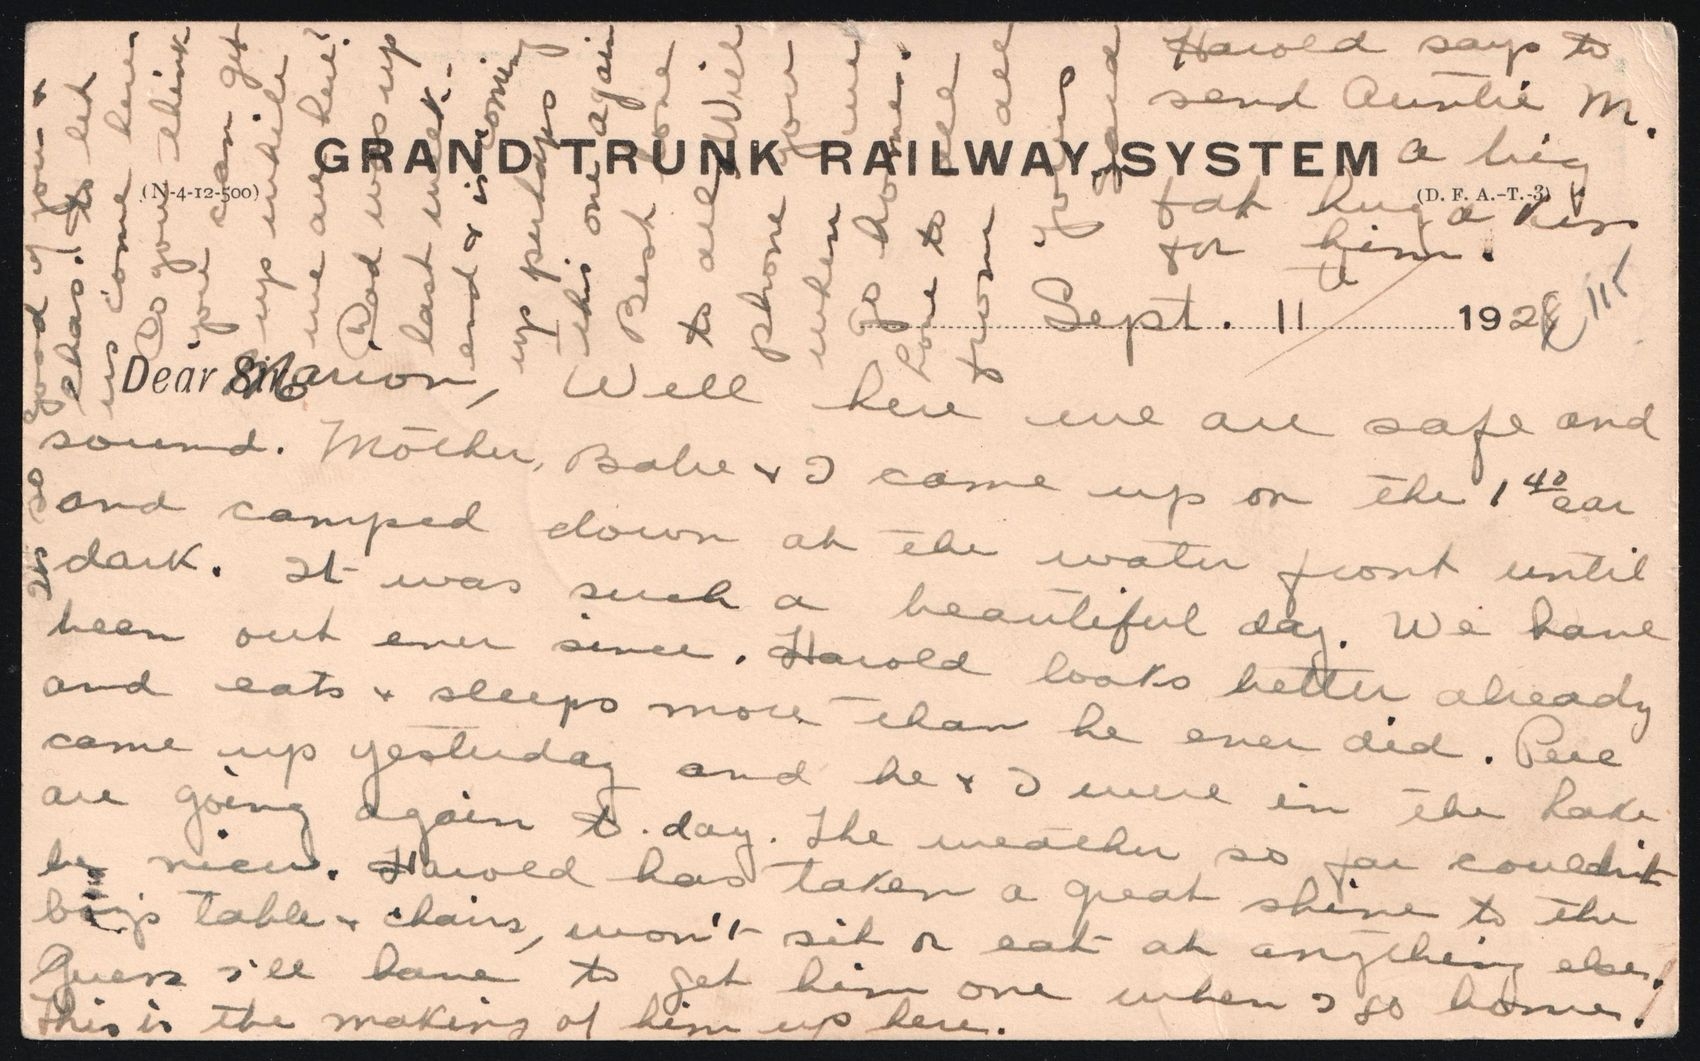 GRAND TRUNK RAILWAY SYSTEM
(N-4-12-500)
(D. F. A.-T.-3)
Sept. 11th 192
Dear Sir Marion, Well here we are safe and
sound. Mother, Babe & I came up on the 1 40 car
and camped down at the water front until
dark. It was such a beautiful day. We have
been out ever since. Harold looks better already
and eats & sleeps more than he ever did. Pere
came up yesterday and he & I were in the Lake
are going again to-day. The weather so far couldn't
be nicer. Harold has taken a great shine to the
boy's table & chairs, won't sit or eat at anything else.
Guess I'll have to get him one when I go home!
This is the making of him up here.
It is so good of you &
Chas.! to let
us come here.
Do you think
you can get
up while
we are here?
Dad was up
last week-
end & is coming
up perhaps
this one again
Best love
to all. Will
phone you
when we
go home.
Love to all
from all
Harold says to
send Auntie M.
a big
fat hug & a kiss
for him.